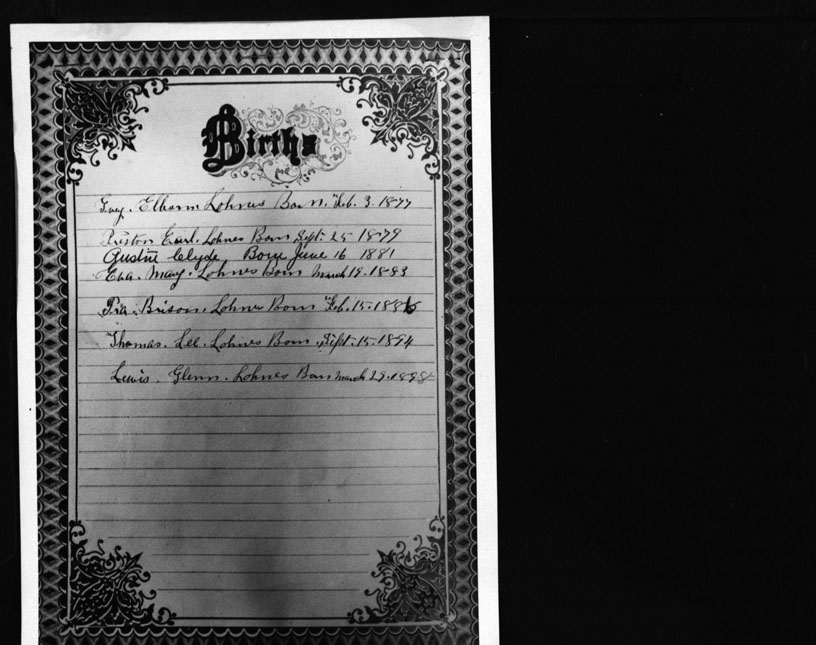 Births
Lohnes Born Feb. 3. 1877
Preston Earl. Lohnes Born Sept. 25 1879
Gustie Clyde Born June 16 1881
Eva. May. Lohnes Born March 19. 1883
Ira. Brison. Lohnes Born Feb. 15. 1886
Thomas. Lee. Lohnes Born. Sept. 15. 1894
Lewis. Glenn. Lohnes Born March 29. 1898